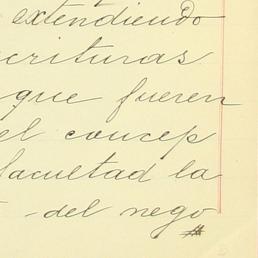 extendiendo
crituras
que fueren
el concep
facultad la
-del nego